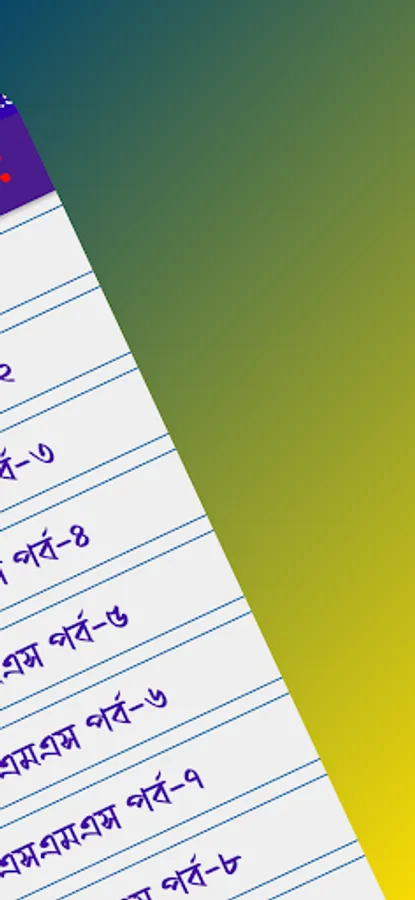 ২
র্ব-৩
পর্ব-৪
এস পর্ব-৫
এমএস পর্ব-৬
এসএমএস পর্ব-৭
পর্ব-৮